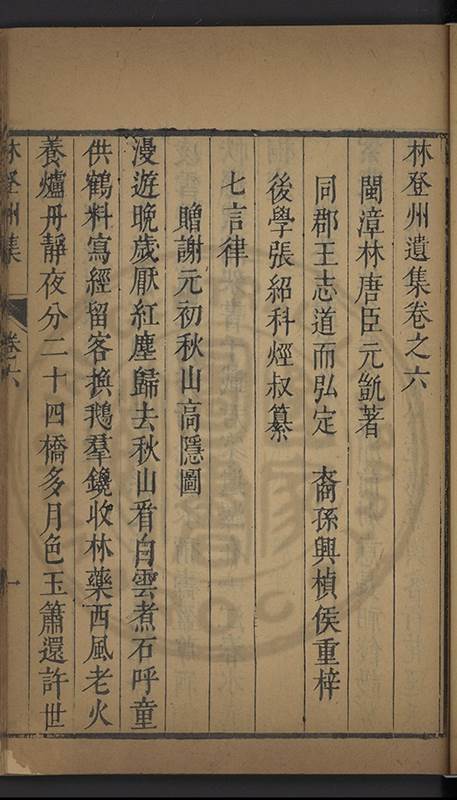 林登州遺集卷之六
閩漳林唐臣元凱著
同郡王志道而弘定　裔孫興楨侯重梓
後學張紹科烴叔纂
七言律
贈謝元初秋山高隱圖
漫遊晩歲厭紅塵歸去秋山看白雲煮石呼童
供鶴料寫經留客換鵝羣鑱收林藥西風老火
養爐丹靜夜分二十四橋多月色玉簫還許世
林登州集　卷六　一